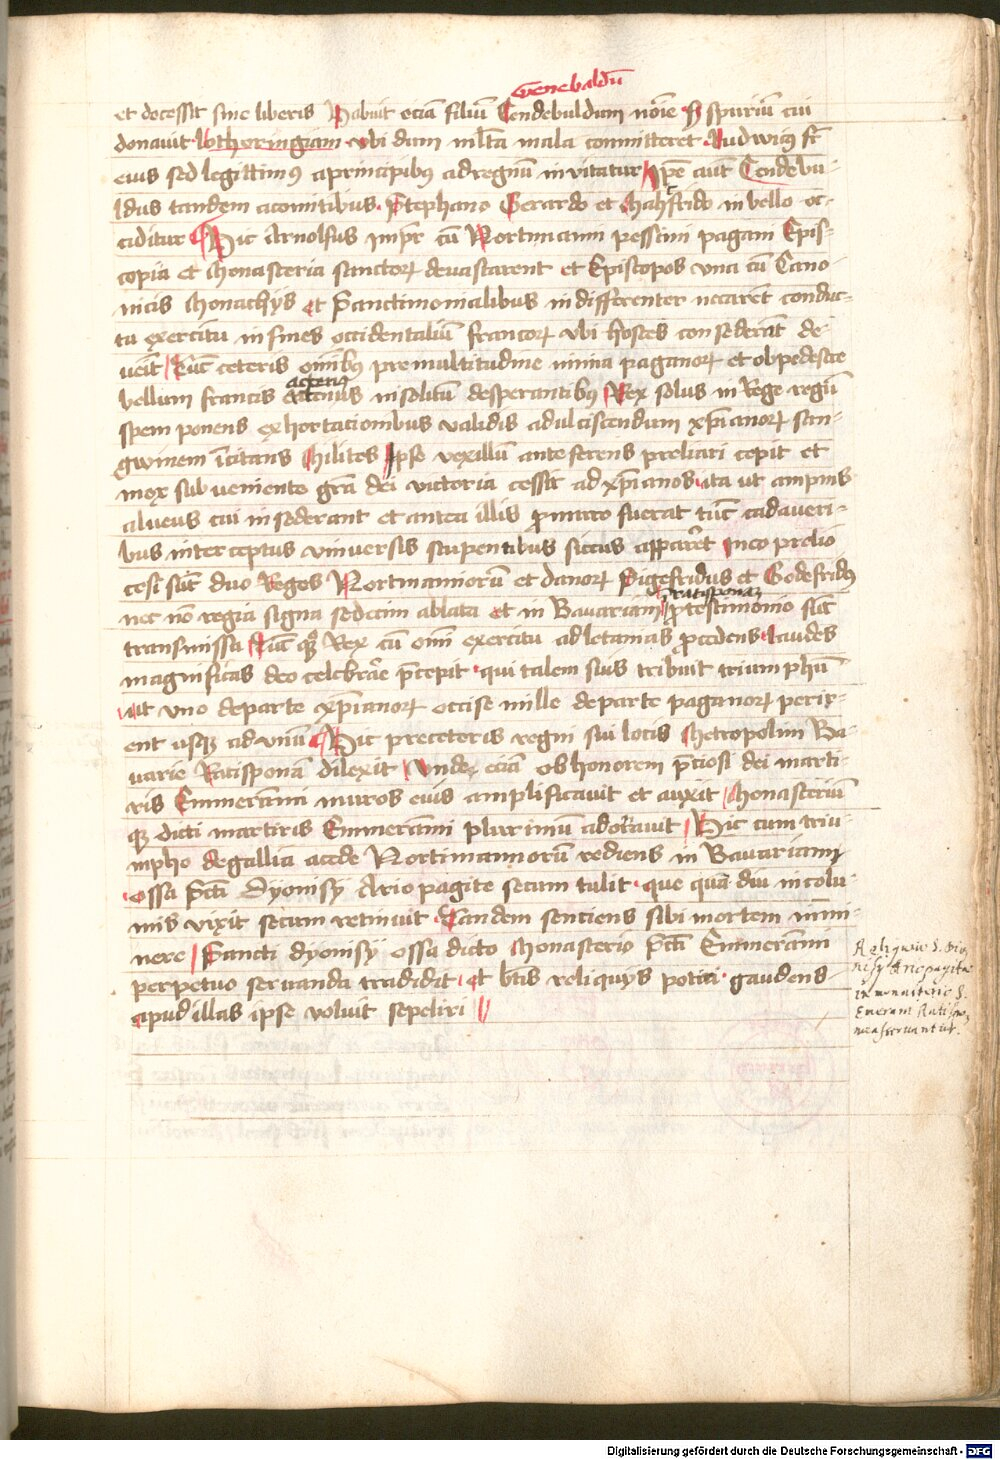 Genebaldū
et decessit sine liberis Habuit eciā filiū Cendebuldum noīe S spuriū cui
donauit lothoringiam vbi dum mlta mala committeret Ludwicꝰ fr̄
eius sed legittimꝰ a principibꝰ ad regnū inuitatur Ipē aut Cendebu-
ldus tandem a comitibus Stephano Gerardo et Mahfrido in bello oc-
ciditur Hic Arnolfus Impr̄ cū Nortmanni pessimi pagani Epis-
copia et Monasteria sanctoꝝ deuastarent et Episcopos vna cū Cano-
nicis Monachys et Sanctimonialibus indifferenter necarēt conduc-
tu exercitu in fines occidentaliū francoꝝ vbi hostes consederāt de-
ueīt Tūc ceteris omībꝰ pre multitudine nimia paganoꝝ et ob pedestre
actenus
bellum francis eatenus insolitū desperantibꝰ Rex solus in Rege regū
spem ponens exhortacionibus validis ad ulciscendum xp̄ianoꝝ san-
gwinem īcitans Milites Ipse vexillū anteferens preliari cepit et
mox subueniente grā dei victoria cessit ad xp̄ianos ita ut ampnis
alueus cui insederant et antea illis pro muro fuerat tūc cadaueri-
bus interceptus vniuersis stupentibus siccus apparēt In eo prelio
cesi sūt duo Reges Nortmannorū et danoꝝ Sigefridus et Godefridꝰ
ratisponaȝ
nec nō regia signa sedecim ablata et in Bauariam pro testimonio sūt
transmissa Tūc qꝫ Rex cū omī exercitu ad letanias procedens laudes
magnificas deo celebrāe p̄cepit qui talem suis tribuit triumphū
ut vno de parte xp̄ianoꝝ occise mille de parte paganoꝝ perir-
ent usqꝫ ad vnū Hic pre ceteris regni sui locis Metropolim Ba
uarie Ratisponā dilexit Vnde eciā ob honorem p̄ciosi dei marti-
ris Emmerāmi muros eius amplificauit et auxit Monasteriū
qꝫ dicti martiris Emmerāmi plurimū adornauit Hic cum triu-
mpho de gallia a cede Nortimannorū rediens in Bauariam
ossa sc̄ti Dyonisy Ariopagite secum tulit que quādiu incolu-
mis vixit secum retinuit Tandem senciens sibi mortem immi-
nere Sancti dyonisy ossa dicto Monasterio sc̄ti Emmerāmi
perpetuo seruanda tradidit et bt̄is reliquys potiri gaudens
apud illas ipse voluit sepeliri
Reliquie S. Dio
nisy Ariopagitae
in monasterio S.
Emeram Ratispo
nen seruantur.
Digitalisierung gefördert durch die Deutsche Forschungsgemeinschaft - DFG